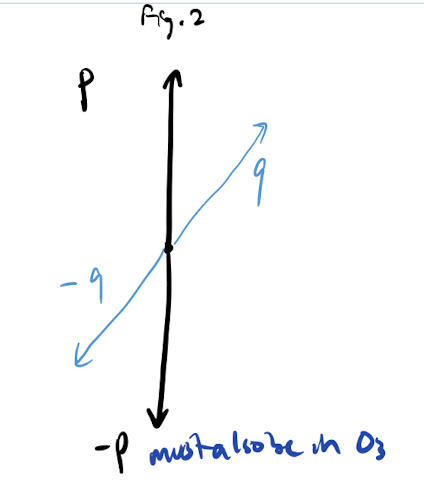 Fig. 2
p
q
-q
-p must also be in O3